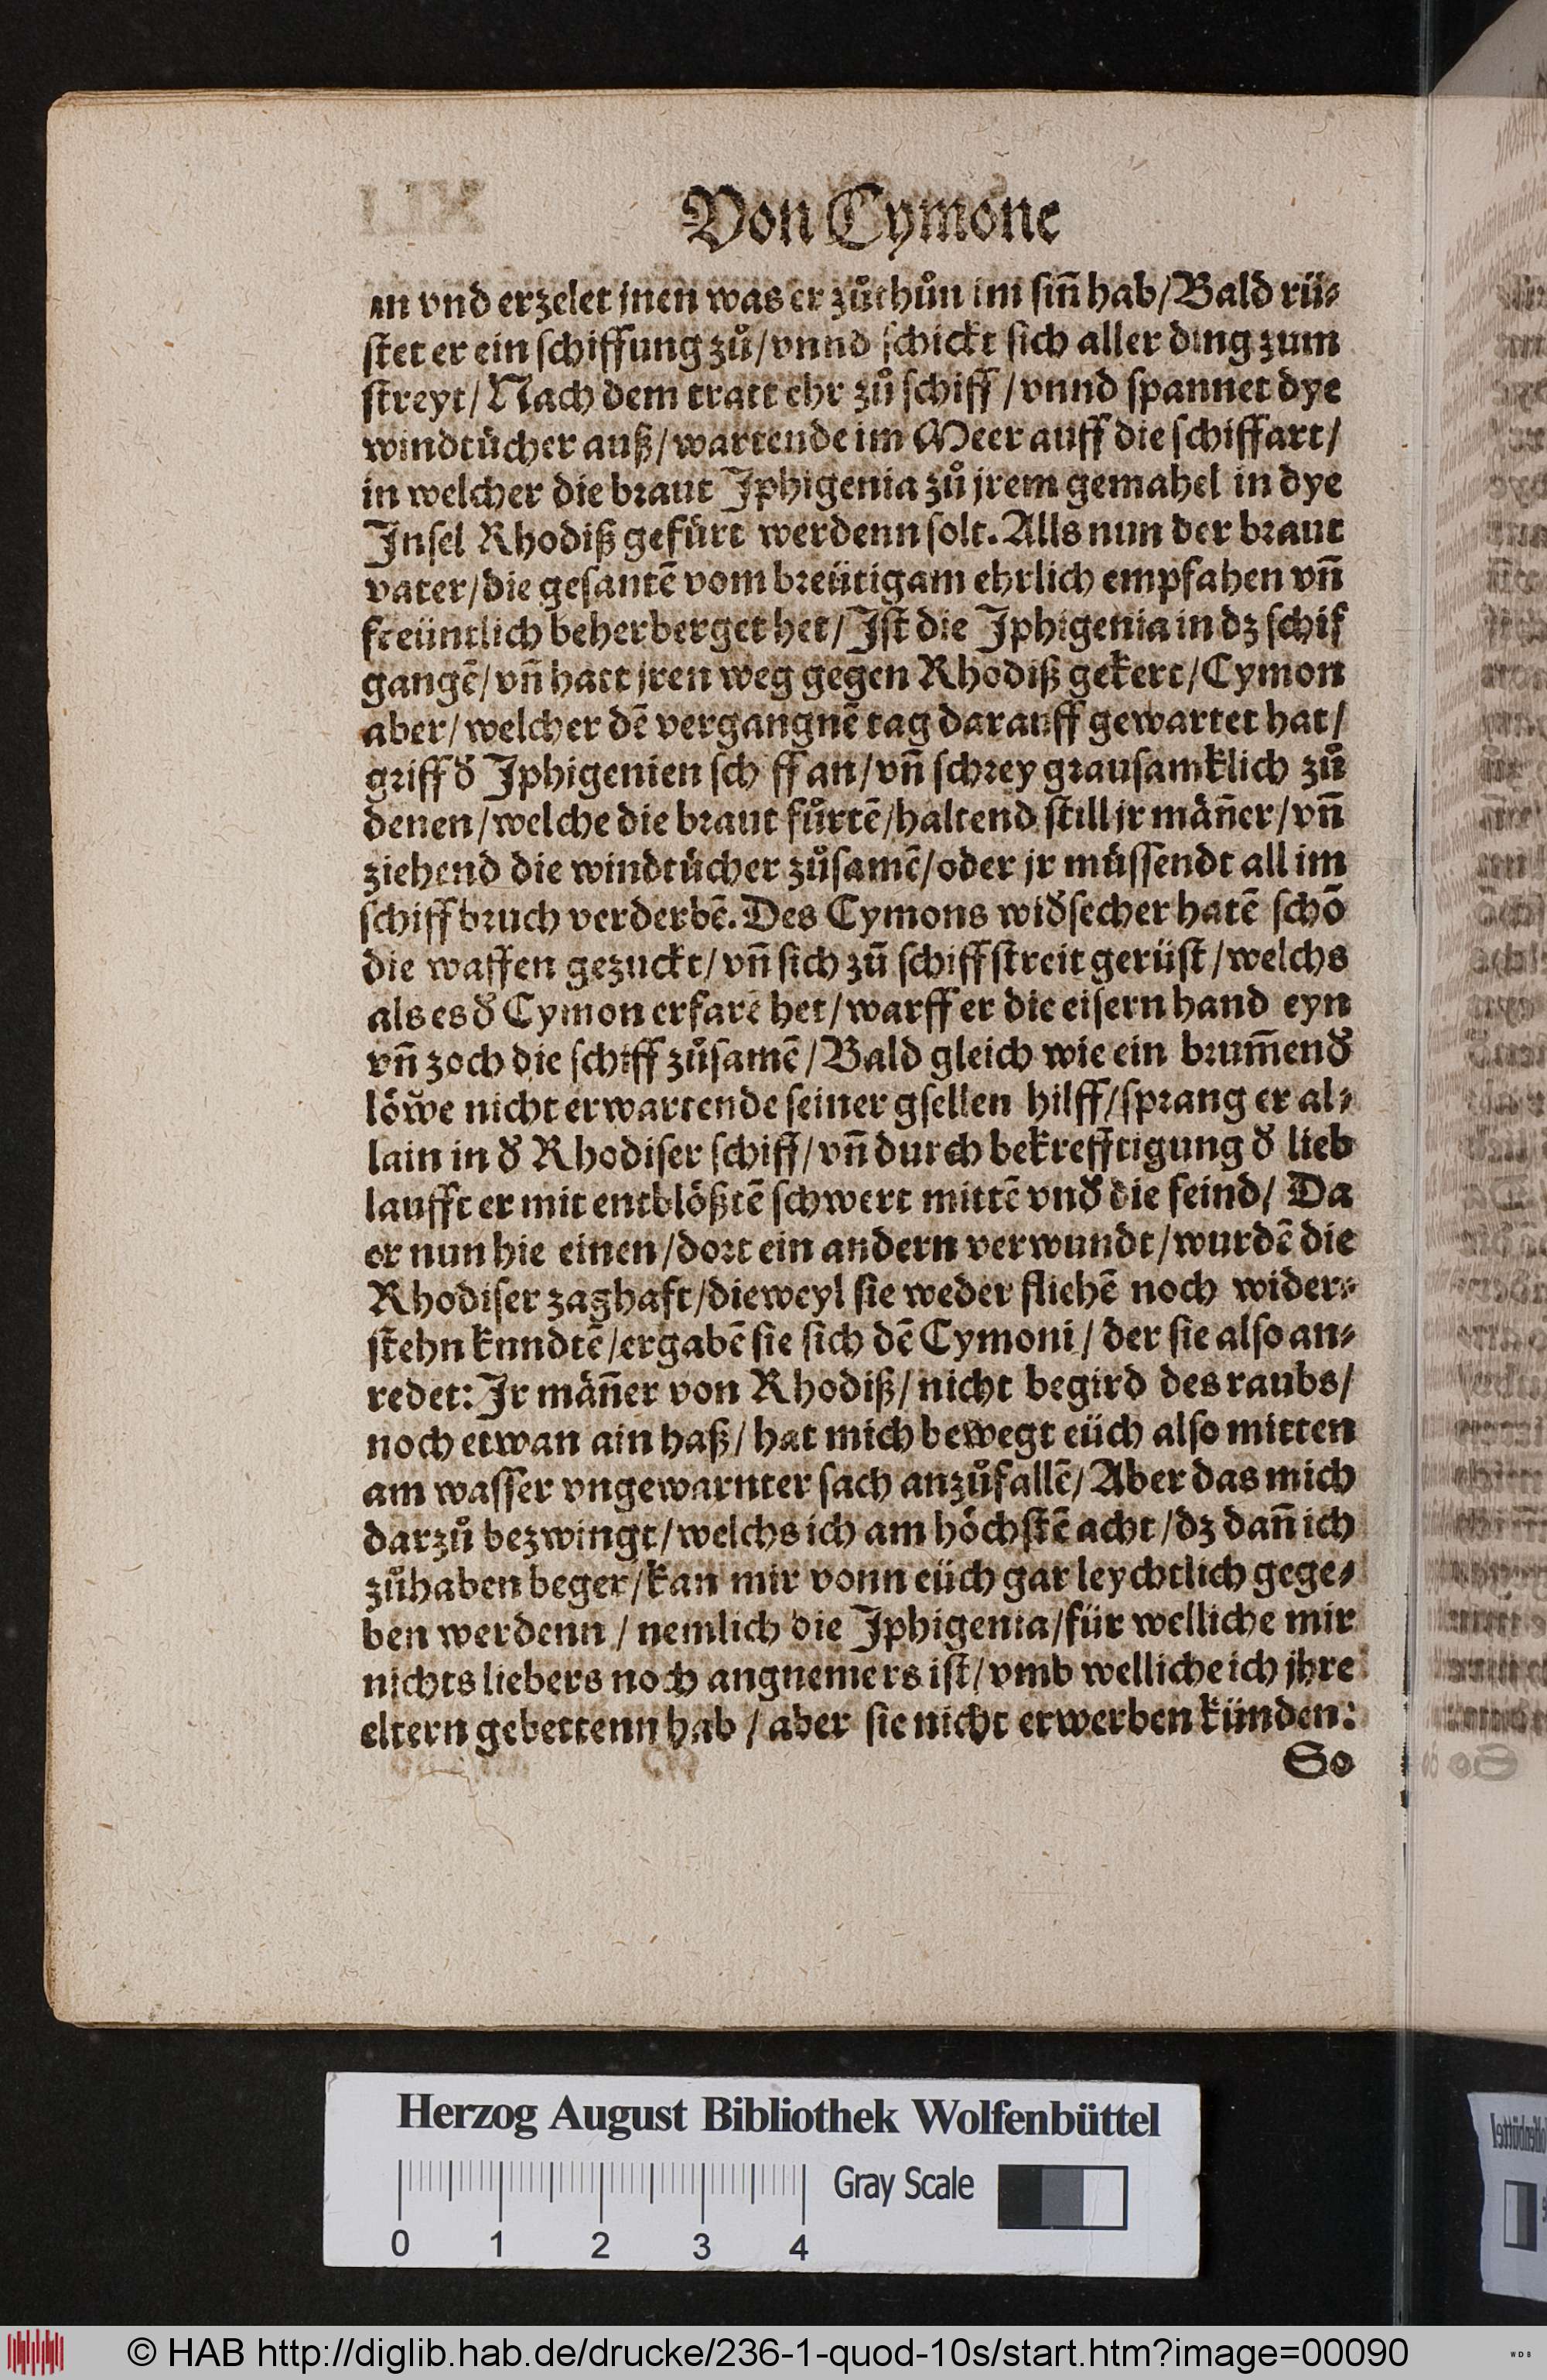 Von Cymone
an vnd erzelet jnen was er zůthůn im siñ hab/Bald rü-
stet er ein schiffung zů/vnnd schickt sich aller ding zum
streyt/Nach dem tratt ehr zů schiff/vnnd spannet dye
windtücher auß/wartende im Meer auff die schiffart/
in welcher die braut Iphigenia zů jrem gemahel in dye
Insel Rhodiß gefürt werdenn solt. Alls nun der braut
vater/die gesantē vom breütigam ehrlich empfahen vñ
freüntlich beherberget het/Ist die Iphigenia in dz schif
gangē/vñ hatt jren weg gegen Rhodiß gekert/Cymon
aber/welcher dē vergangnē tag darauff gewartet hat/
griff ď Iphigenien sch ff an/vñ schrey grausamklich zů
denen/welche die braut fůrtē/haltend still jr mäñer/vñ
ziehend die windtücher zůsamē/oder jr müssendt all im
schiffbruch verderbē. Des Cymons widďsecher hatē schō
die waffen gezuckt/vñ sich zū schiffstreit gerüst/welchs
als es ď Cymon erfarē het/warff er die eisern hand eyn
vñ zoch die schiff zůsamē/Bald gleich wie ein brum̄enď
löwe nicht erwartende seiner gsellen hilff/sprang er al-
lain in ď Rhodiser schiff/vñ durch bekrefftigung ď lieb
laufft er mit entblößtē schwert mittē vnď die feind/Da
er nun hie einen/dort ein andern verwundt/wurdē die
Rhodiser zaghaft/dieweyl sie weder fliehē noch wider-
stehn kundtē/ergabē sie sich dē Cymoni/der sie also an-
redet: Ir mäñer von Rhodiß/nicht begird des raubs/
noch etwan ain haß/hat mich bewegt eüch also mitten
am wasser vngewarnter sach anzůfallē/Aber das mich
darzů bezwingt/welchs ich am höchstē acht/dz dañ ich
zůhaben beger/kan mir vonn eüch gar leychtlich gege-
ben werdenn/nemlich die Iphigenia/für welliche mir
nichts liebers noch angnemers ist/vmb welliche ich jhre
eltern gebettenn hab/aber sie nicht erwerben künden:
So
Herzog August Bibliothek Wolfenbüttel
0 1 2 3 4 Gray Scale
© HAB http://diglib.hab.de/drucke/236-1-quod-10s/start.htm?image=00090